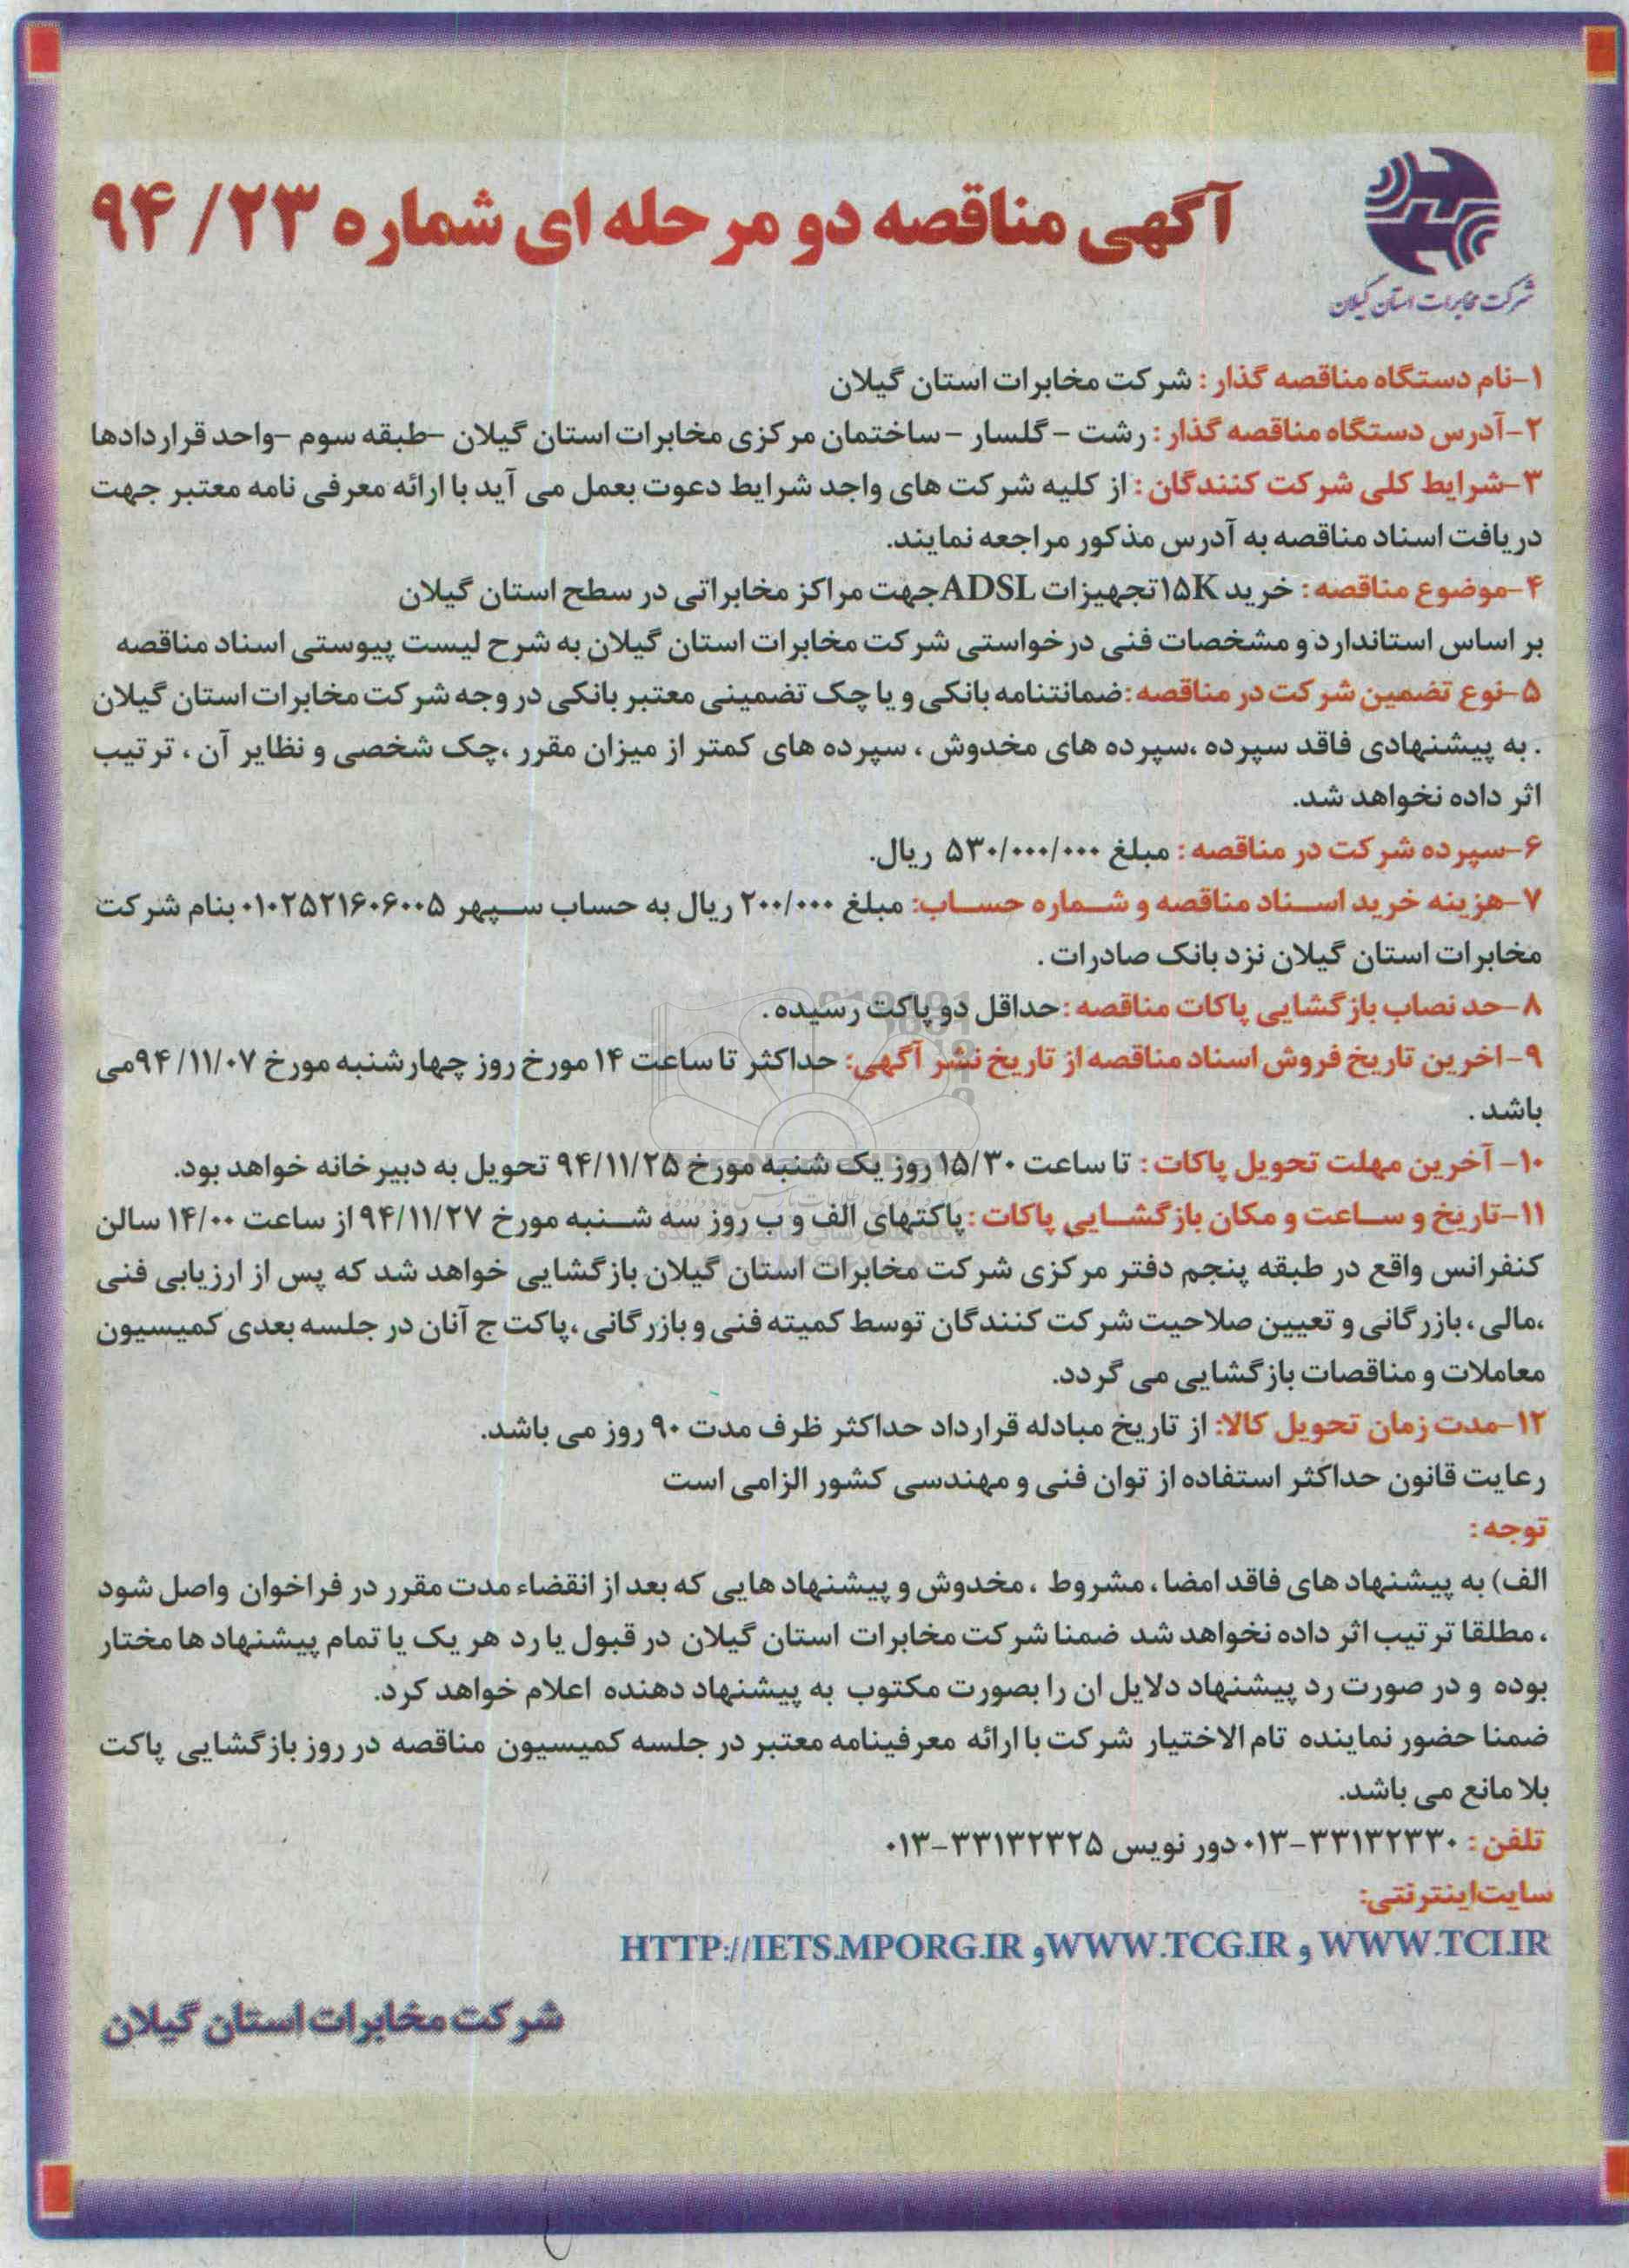 آگهی مناقصه دو مرحله ای شماره ۲۳/ ۹۴
شرکت مخابرات استان گیلان
۱-نام دستگاه مناقصه گذار : شرکت مخابرات استان گیلان
۲-آدرس دستگاه مناقصه گذار : رشت - گلسار - ساختمان مرکزی مخابرات استان گیلان -طبقه سوم -واحد قراردادها
۳-شرایط کلی شرکت کنندگان : از کلیه شرکت های واجد شرایط دعوت بعمل می آید با ارائه معرفی نامه معتبر جهت
دریافت اسناد مناقصه به آدرس مذکور مراجعه نمایند.
۴-موضوع مناقصه : خرید ۱۵K تجهیزات ADSL جهت مراکز مخابراتی در سطح استان گیلان
بر اساس استاندارد و مشخصات فنی درخواستی شرکت مخابرات استان گیلان به شرح لیست پیوستی اسناد مناقصه
۵-نوع تضمین شرکت در مناقصه :ضمانتنامه بانکی و یا چک تضمینی معتبر بانکی در وجه شرکت مخابرات استان گیلان
. به پیشنهادی فاقد سپرده ،سپرده های مخدوش ، سپرده های کمتر از میزان مقرر ،چک شخصی و نظایر آن ، ترتیب
اثر داده نخواهد شد.
۶-سپرده شرکت در مناقصه : مبلغ ۵۳۰/۰۰۰/۰۰۰ ریال.
۷-هزینه خرید اسناد مناقصه و شماره حساب: مبلغ ۲۰۰/۰۰۰ ریال به حساب سپهر ۰۱۰۲۵۲۱۶۰۶۰۰۵ بنام شرکت
مخابرات استان گیلان نزد بانک صادرات .
۸-حد نصاب بازگشایی پاکات مناقصه :حداقل دو پاکت رسیده .
۹- اخرین تاریخ فروش اسناد مناقصه از تاریخ نشر آگهی: حداکثر تا ساعت ۱۴ مورخ روز چهارشنبه مورخ ۹۴/۱۱/۰۷می
باشد .
۱۰- آخرین مهلت تحویل پاکات : تا ساعت ۱۵/۳۰ روز یک شنبه مورخ ۹۴/۱۱/۲۵ تحویل به دبیرخانه خواهد بود.
۱۱-تاریخ و ساعت و مکان بازگشایی پاکات : پاکتهای الف و ب روز سه شنبه مورخ ۹۴/۱۱/۲۷ از ساعت ۱۴/۰۰ سالن
کنفرانس واقع در طبقه پنجم دفتر مرکزی شرکت مخابرات استان گیلان بازگشایی خواهد شد که پس از ارزیابی فنی
،مالی ، بازرگانی و تعیین صلاحیت شرکت کنندگان توسط کمیته فنی و بازرگانی ،پاکت ج آنان در جلسه بعدی کمیسیون
معاملات و مناقصات بازگشایی می گردد.
۱۲-مدت زمان تحویل کالا: از تاریخ مبادله قرارداد حداکثر ظرف مدت ۹۰ روز می باشد.
رعایت قانون حداکثر استفاده از توان فنی و مهندسی کشور الزامی است
توجه :
الف) به پیشنهاد های فاقد امضا ، مشروط ، مخدوش و پیشنهاد هایی که بعد از انقضاء مدت مقرر در فراخوان واصل شود
، مطلقا ترتیب اثر داده نخواهد شد ضمنا شرکت مخابرات استان گیلان در قبول یا رد هر یک یا تمام پیشنهاد ها مختار
بوده و در صورت رد پیشنهاد دلایل ان را بصورت مکتوب به پیشنهاد دهنده اعلام خواهد کرد.
ضمنا حضور نماینده تام الاختیار شرکت با ارائه معرفینامه معتبر در جلسه کمیسیون مناقصه در روز بازگشایی پاکت
بلا مانع می باشد.
تلفن : ۳۳۱۳۲۳۳۰-۰۱۳ دور نویس ۳۳۱۳۲۳۲۵-۰۱۳
سایت اینترنتی:
WWW.TCI.IR و WWW.TCG.IR و HTTP://IETS.MPORG.IR
شرکت مخابرات استان گیلان